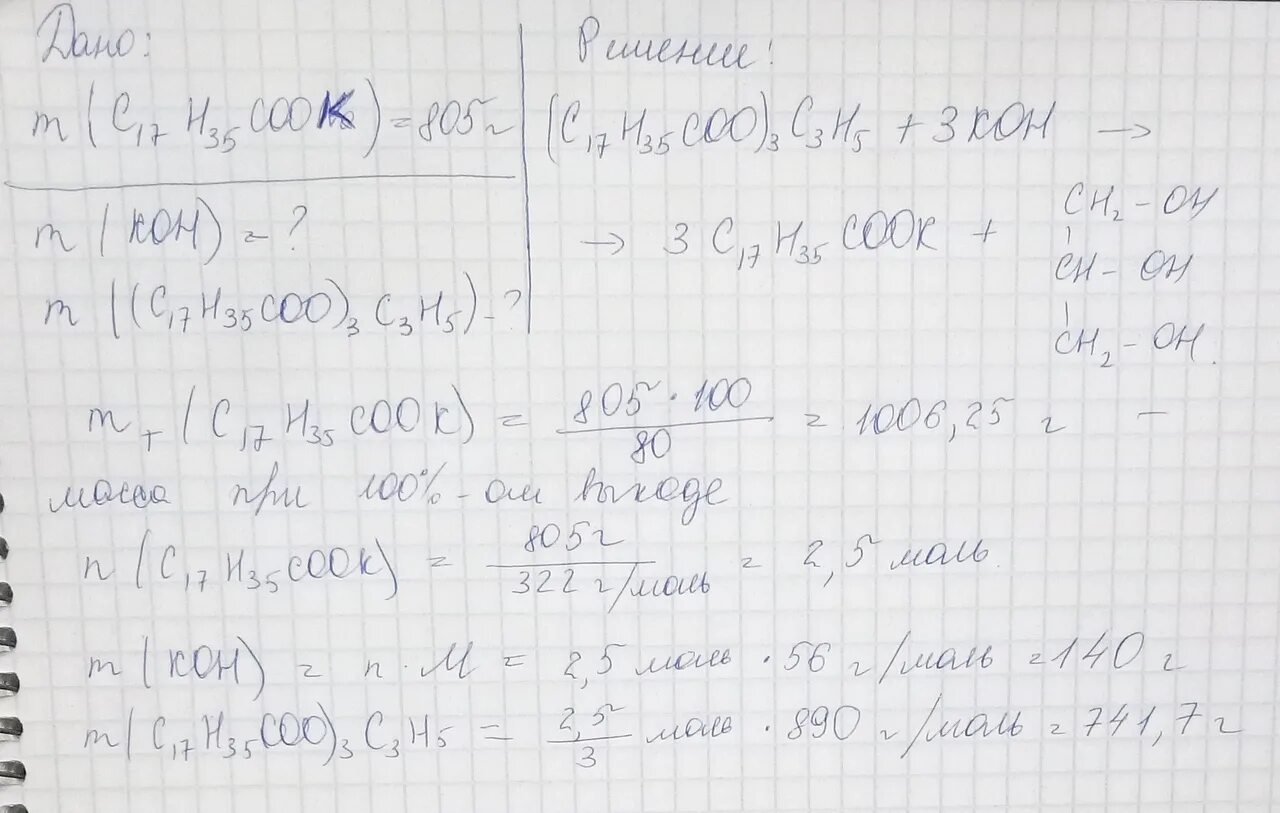 Дано:
m (C₁₇H₃₅COOK) = 805 г
m (KOH) = ?
m ((C₁₇H₃₅COO)₃C₃H₅) - ?
Решение:
(C₁₇H₃₅COO)₃C₃H₅ + 3KOH →
→ 3 C₁₇H₃₅COOK +
CH₂ – OH
CH – OH
CH₂ – OH.
mт (C₁₇H₃₅COOK) = 805 · 100 / 80 = 1006,25 г –
масса при 100% - ом выходе
n (C₁₇H₃₅COOK) = 805 г / 322 г/моль = 2,5 моль.
m (KOH) = n · M = 2,5 моль · 56 г/моль = 140 г
m (C₁₇H₃₅COO)₃C₃H₅ = 2,5 / 3 моль · 890 г/моль = 741,7 г